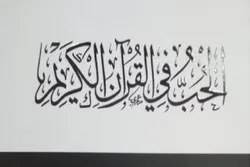 الحُبُّ فِي القُرآنِ الكَرِيمِ